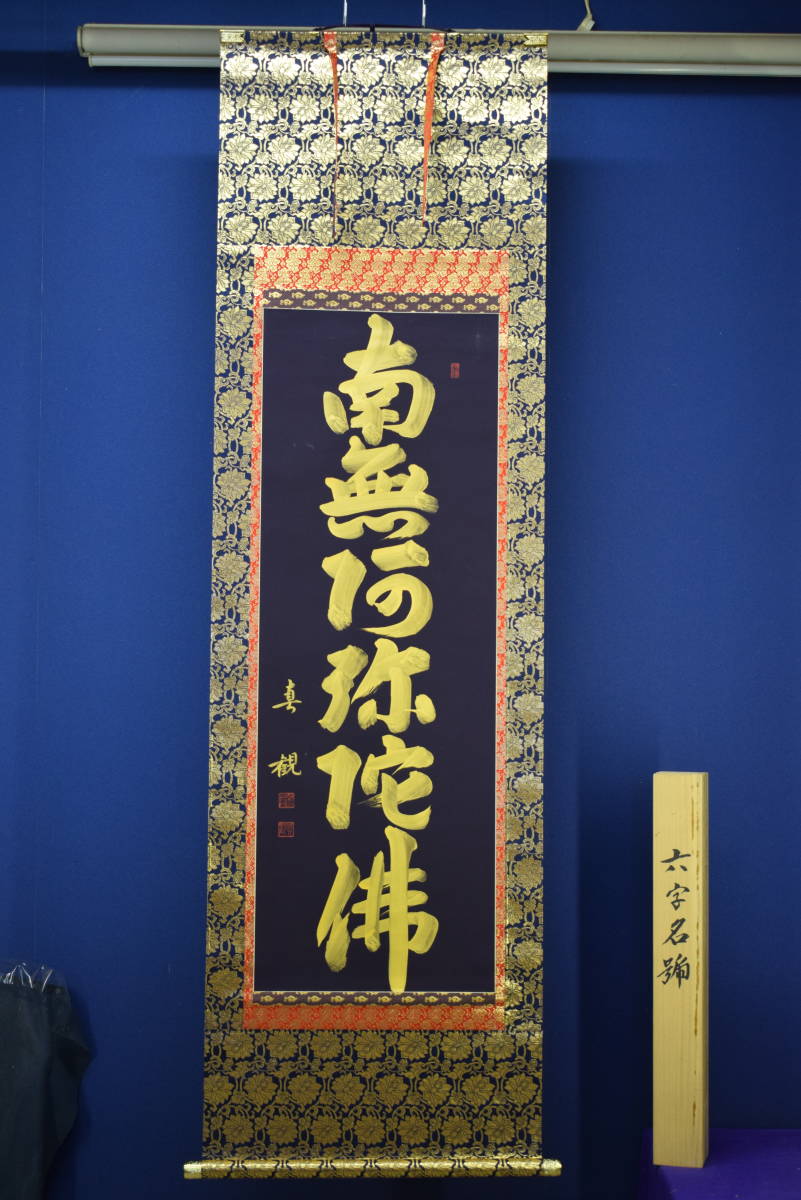 南無阿弥陀佛
真観
六字名號